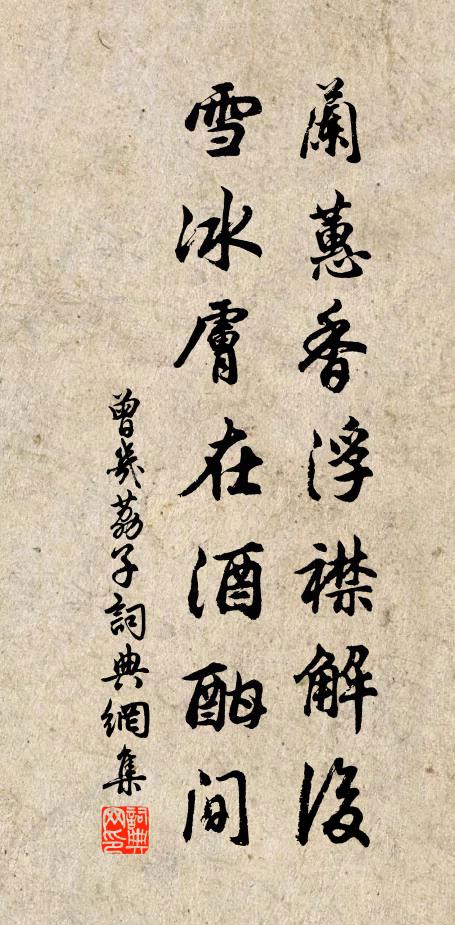 蘭蕙香浮襟解後
雪冰膚在酒酣间
曾幾荔子詞典網集
詞典網印